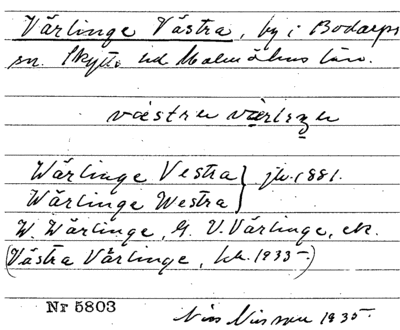 Värlinge Västra, by i Bodarps
sn. Skytts hd Malmöhus län.
västrer värlinge
Wärlinge Vestra } jb. 1881.
Wärlinge Westra
W. Wärlinge, G. V. Värlinge, ek.
(Västra Värlinge, kk. 1935-)
Nr 5803
Nils Nilsson 1935.